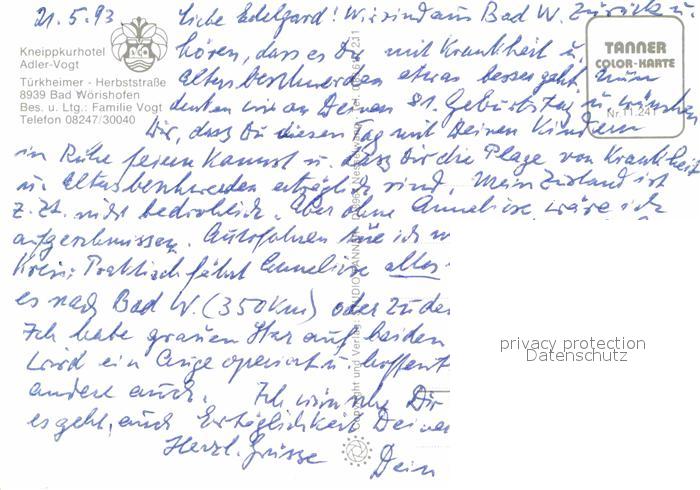 21.5.93 Liebe Edelgard! Wir sind aus Bad W. zurück u.
Kneippkurhotel
Adler-Vogt
Türkheimer - Herbststraße
8939 Bad Wörishofen
Bes. u. Ltg.: Familie Vogt
Telefon 08247/30040
TANNER
COLOR-KARTE
Nr. 11.241
hören, dass es Dir mit Krankheit u.
Altersbeschwerden etwas besser geht. Nun
denken wir an Deinen 81. Geburtstag u. wünschen
Dir, dass Du diesen Tag mit Deinen Kindern
in Ruhe feiern kannst u. dass Dir die Plage von Krankheit
u. Altersbeschwerden erträglich sind. Mein Zustand ist
z. Zt. nicht bedrohlich. Aber ohne Anneliese wäre ich
aufgeschmissen. Autofahren tue ich
Kreis: Praktisch fährt Anneliese alles
es nach Bad W. (350 Km) oder zu
Ich habe grauen Star auf beiden
wird ein Auge operiert u. hoffent
andere auch. Ich wünsche Dir
es geht, auch Erträglichkeit Deiner
Herzl. Grüsse
Dein
Copyright und Verlag: STUDIO TANNER
privacy protection
Datenschutz